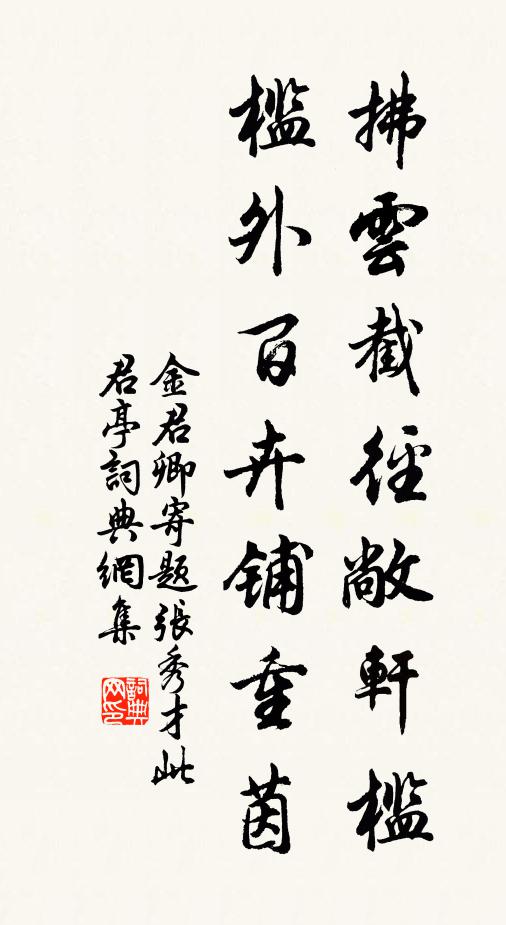 拂雲截徑敞軒檻
檻外百卉鋪重茵
金君卿寄題張秀才此
君亭詞典網集
詞典网印